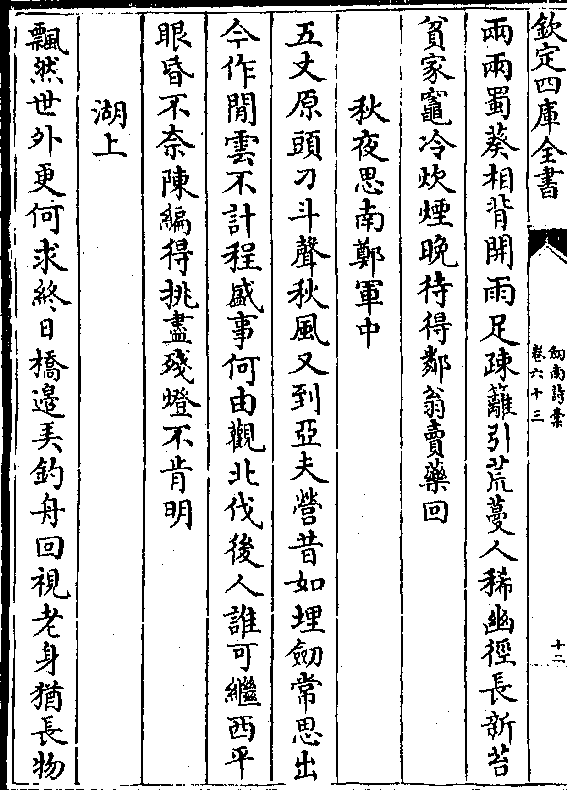 欽定四庫全書
劒南詩槀
卷六十三
十二
兩兩蜀葵相背開雨足疎籬引荒蔓人稀幽徑長新苔
貧家竈冷炊煙晚待得鄰翁賣藥回
秋夜思南鄭軍中
五丈原頭刁斗聲秋風又到亞夫營昔如埋劒常思出
今作閒雲不計程盛事何由觀北伐後人誰可繼西平
眼昏不奈陳編得挑盡殘燈不肯明
湖上
飄然世外更何求終日橋邉弄釣舟回視老身猶長物